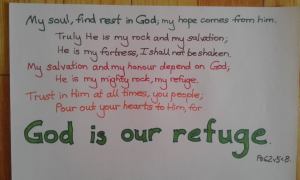 My soul, find rest in God; my hope comes from him.
Truly He is my rock and my salvation;
He is my fortress, I shall not be shaken.
My salvation and my honour depend on God;
He is my mighty rock, my refuge.
Trust in Him at all times, you people;
Pour out your hearts to Him, for
God is our refuge.